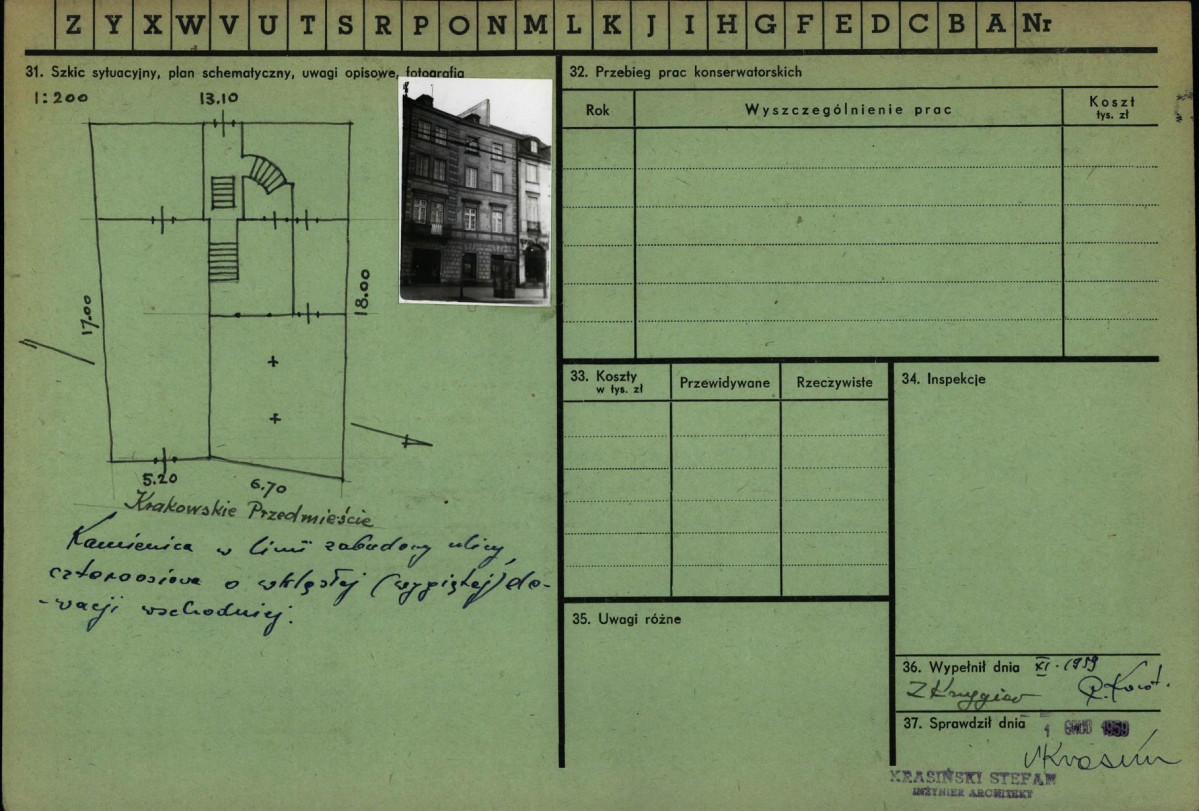 Z Y X W V U T S R P O N M L K J I H G F E D C B A Nr
31. Szkic sytuacyjny, plan schematyczny, uwagi opisowe, fotografia
1:200
13.10
17.00
18.00
5.20
6.70
Krakowskie Przedmieście
Kamienica w linii zabudowy ulicy,
o wklęsłej (wygiętej) ele-
-wacji wschodniej.
32. Przebieg prac konserwatorskich
Rok
Wyszczególnienie prac
Koszt
tys. zł
33. Koszty
w tys. zł
Przewidywane
Rzeczywiste
34. Inspekcje
35. Uwagi różne
36. Wypełnił dnia XI. 1959
37. Sprawdził dnia 1 GRUD 1959
KRASIŃSKI STEFAN
INŻYNIER ARCHITEKT